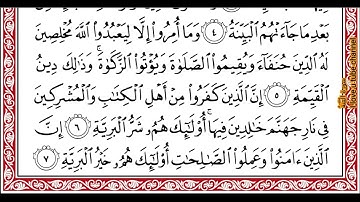 بَعْدِ مَا جَاءَتْهُمُ الْبَيِّنَةُ ٤ وَمَا أُمِرُوا إِلَّا لِيَعْبُدُوا اللَّهَ مُخْلِصِينَ
لَهُ الدِّينَ حُنَفَاءَ وَيُقِيمُوا الصَّلَوٰةَ وَيُؤْتُوا الزَّكَوٰةَ ۚ وَذَٰلِكَ دِينُ
الْقَيِّمَةِ ٥ إِنَّ الَّذِينَ كَفَرُوا مِنْ أَهْلِ الْكِتَابِ وَالْمُشْرِكِينَ
فِي نَارِ جَهَنَّمَ خَالِدِينَ فِيهَا ۚ أُولَٰئِكَ هُمْ شَرُّ الْبَرِيَّةِ ٦ إِنَّ
الَّذِينَ ءَامَنُوا وَعَمِلُوا الصَّالِحَاتِ أُولَٰئِكَ هُمْ خَيْرُ الْبَرِيَّةِ ٧